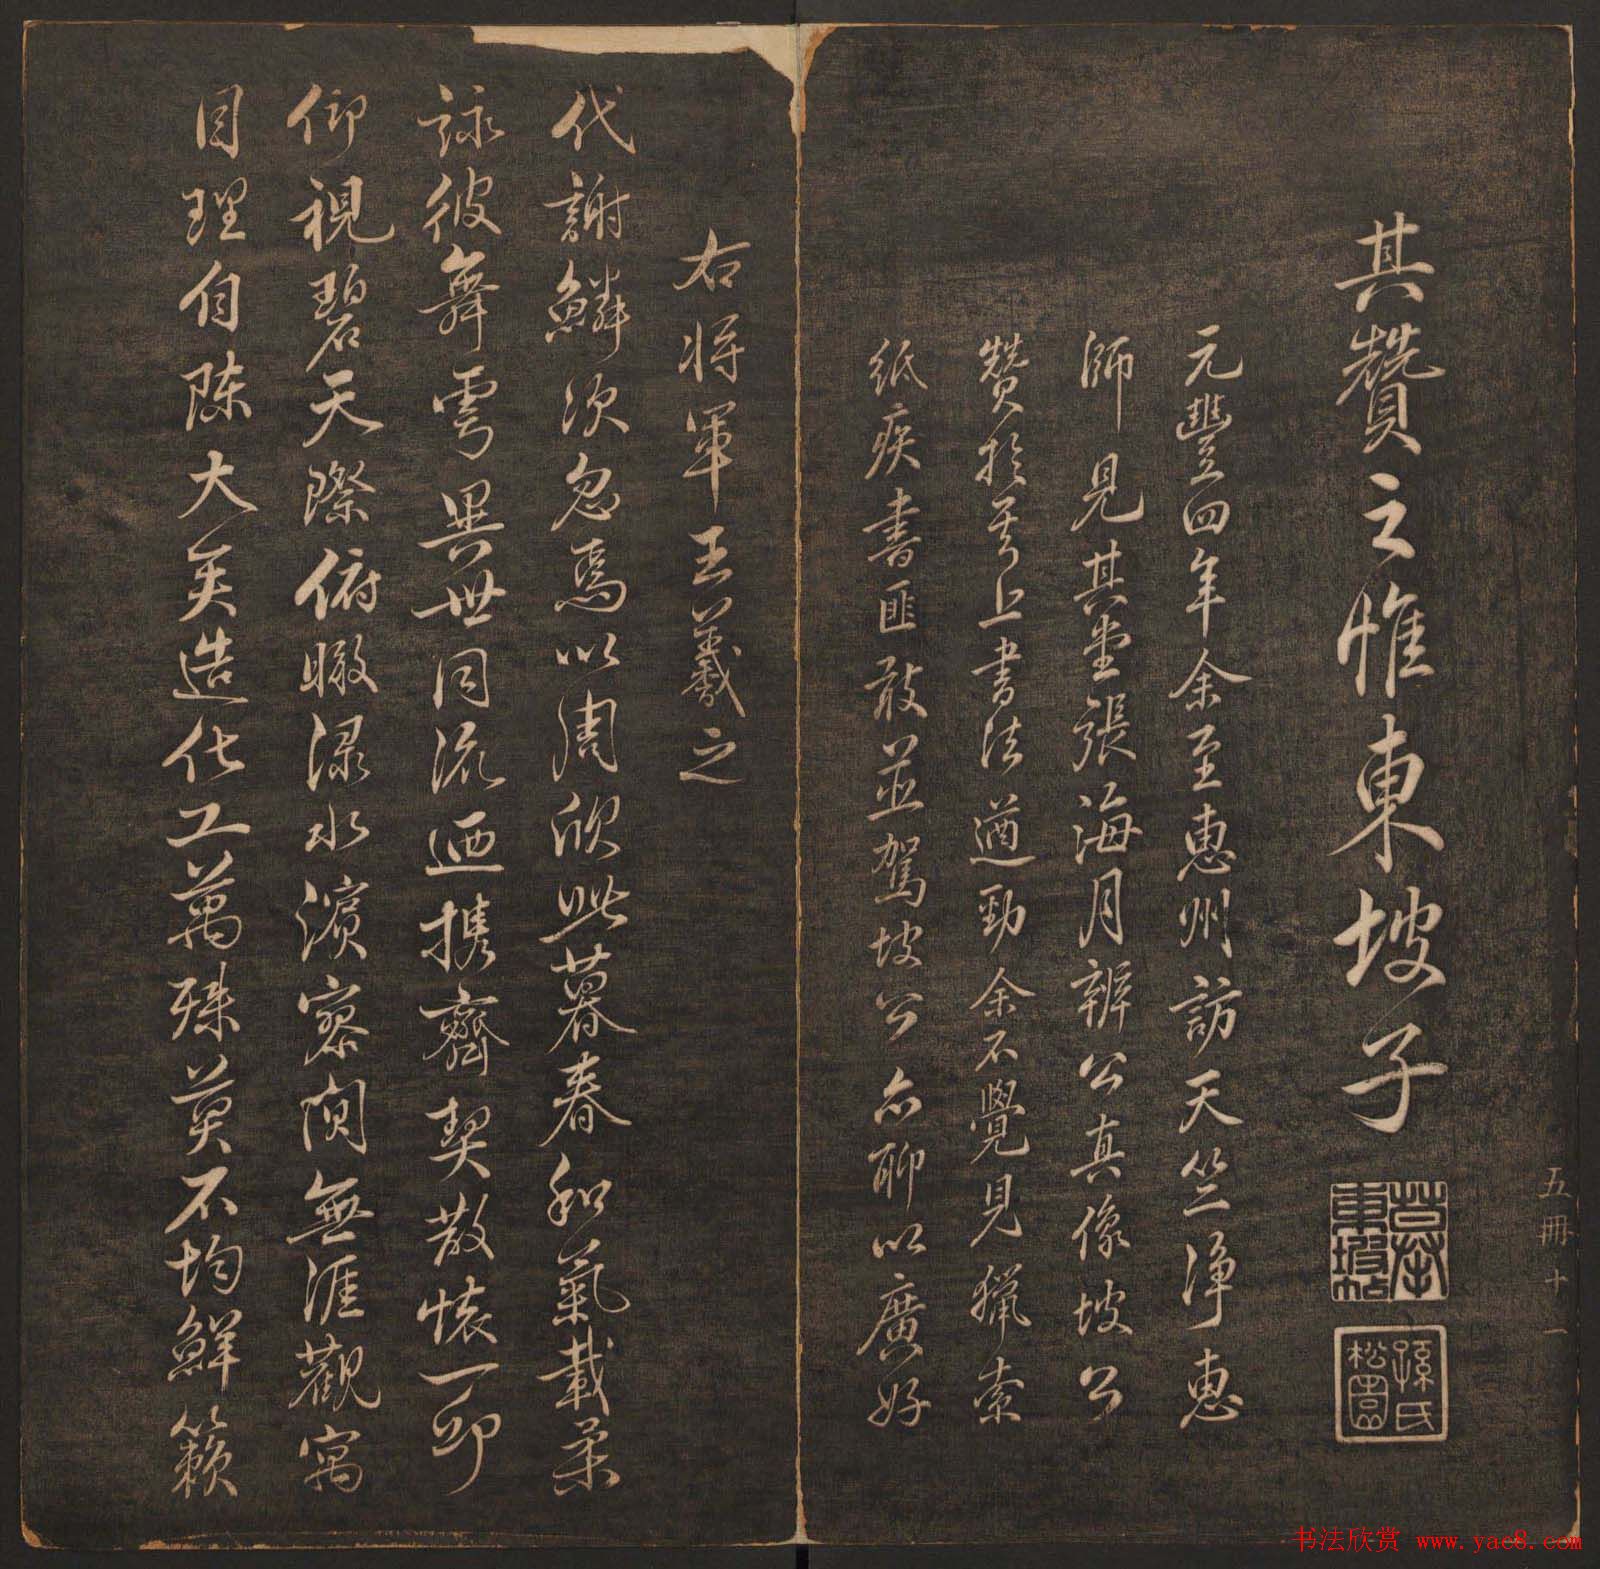 其贊之惟東坡子
元豐四年余至惠州訪天竺淨惠
師見其堂張海月辨公真像坡公
贊於其上書法遒勁余不覺見獵索
紙疾書匪敢並駕坡公亦聊以廣好
孫氏松園
五冊十一
右將軍王羲之
代謝鱗次忽焉以周欣此暮春和氣載柔
詠彼舞雩異世同流迺携齊契散懷一邱
仰視碧天際俯瞰淥水濱寥閴無涯觀寓
目理自陳大矣造化工萬殊莫不均鮮籟
书法欣赏 www.yac8.com